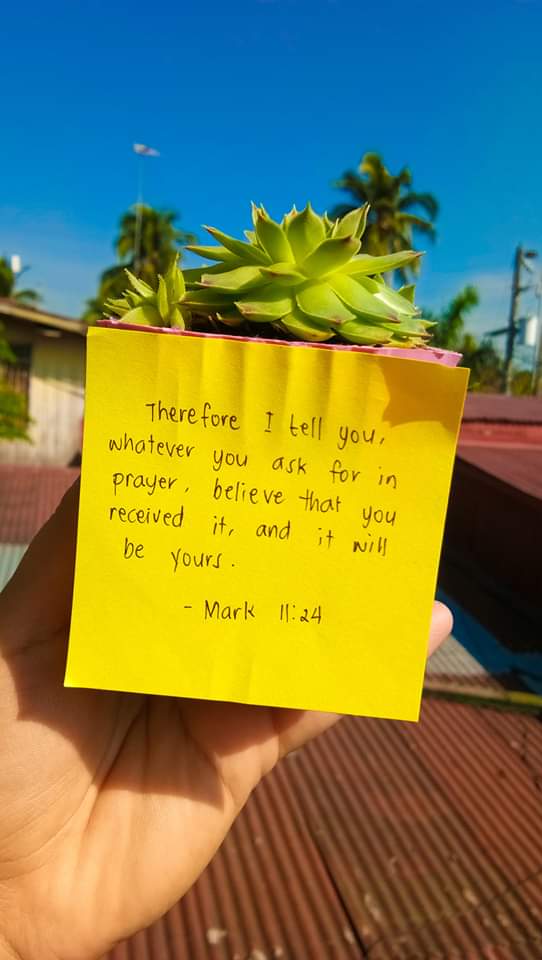 Therefore I tell you,
whatever you ask for in
prayer, believe that you
received it, and it will
be yours.
- Mark 11:24